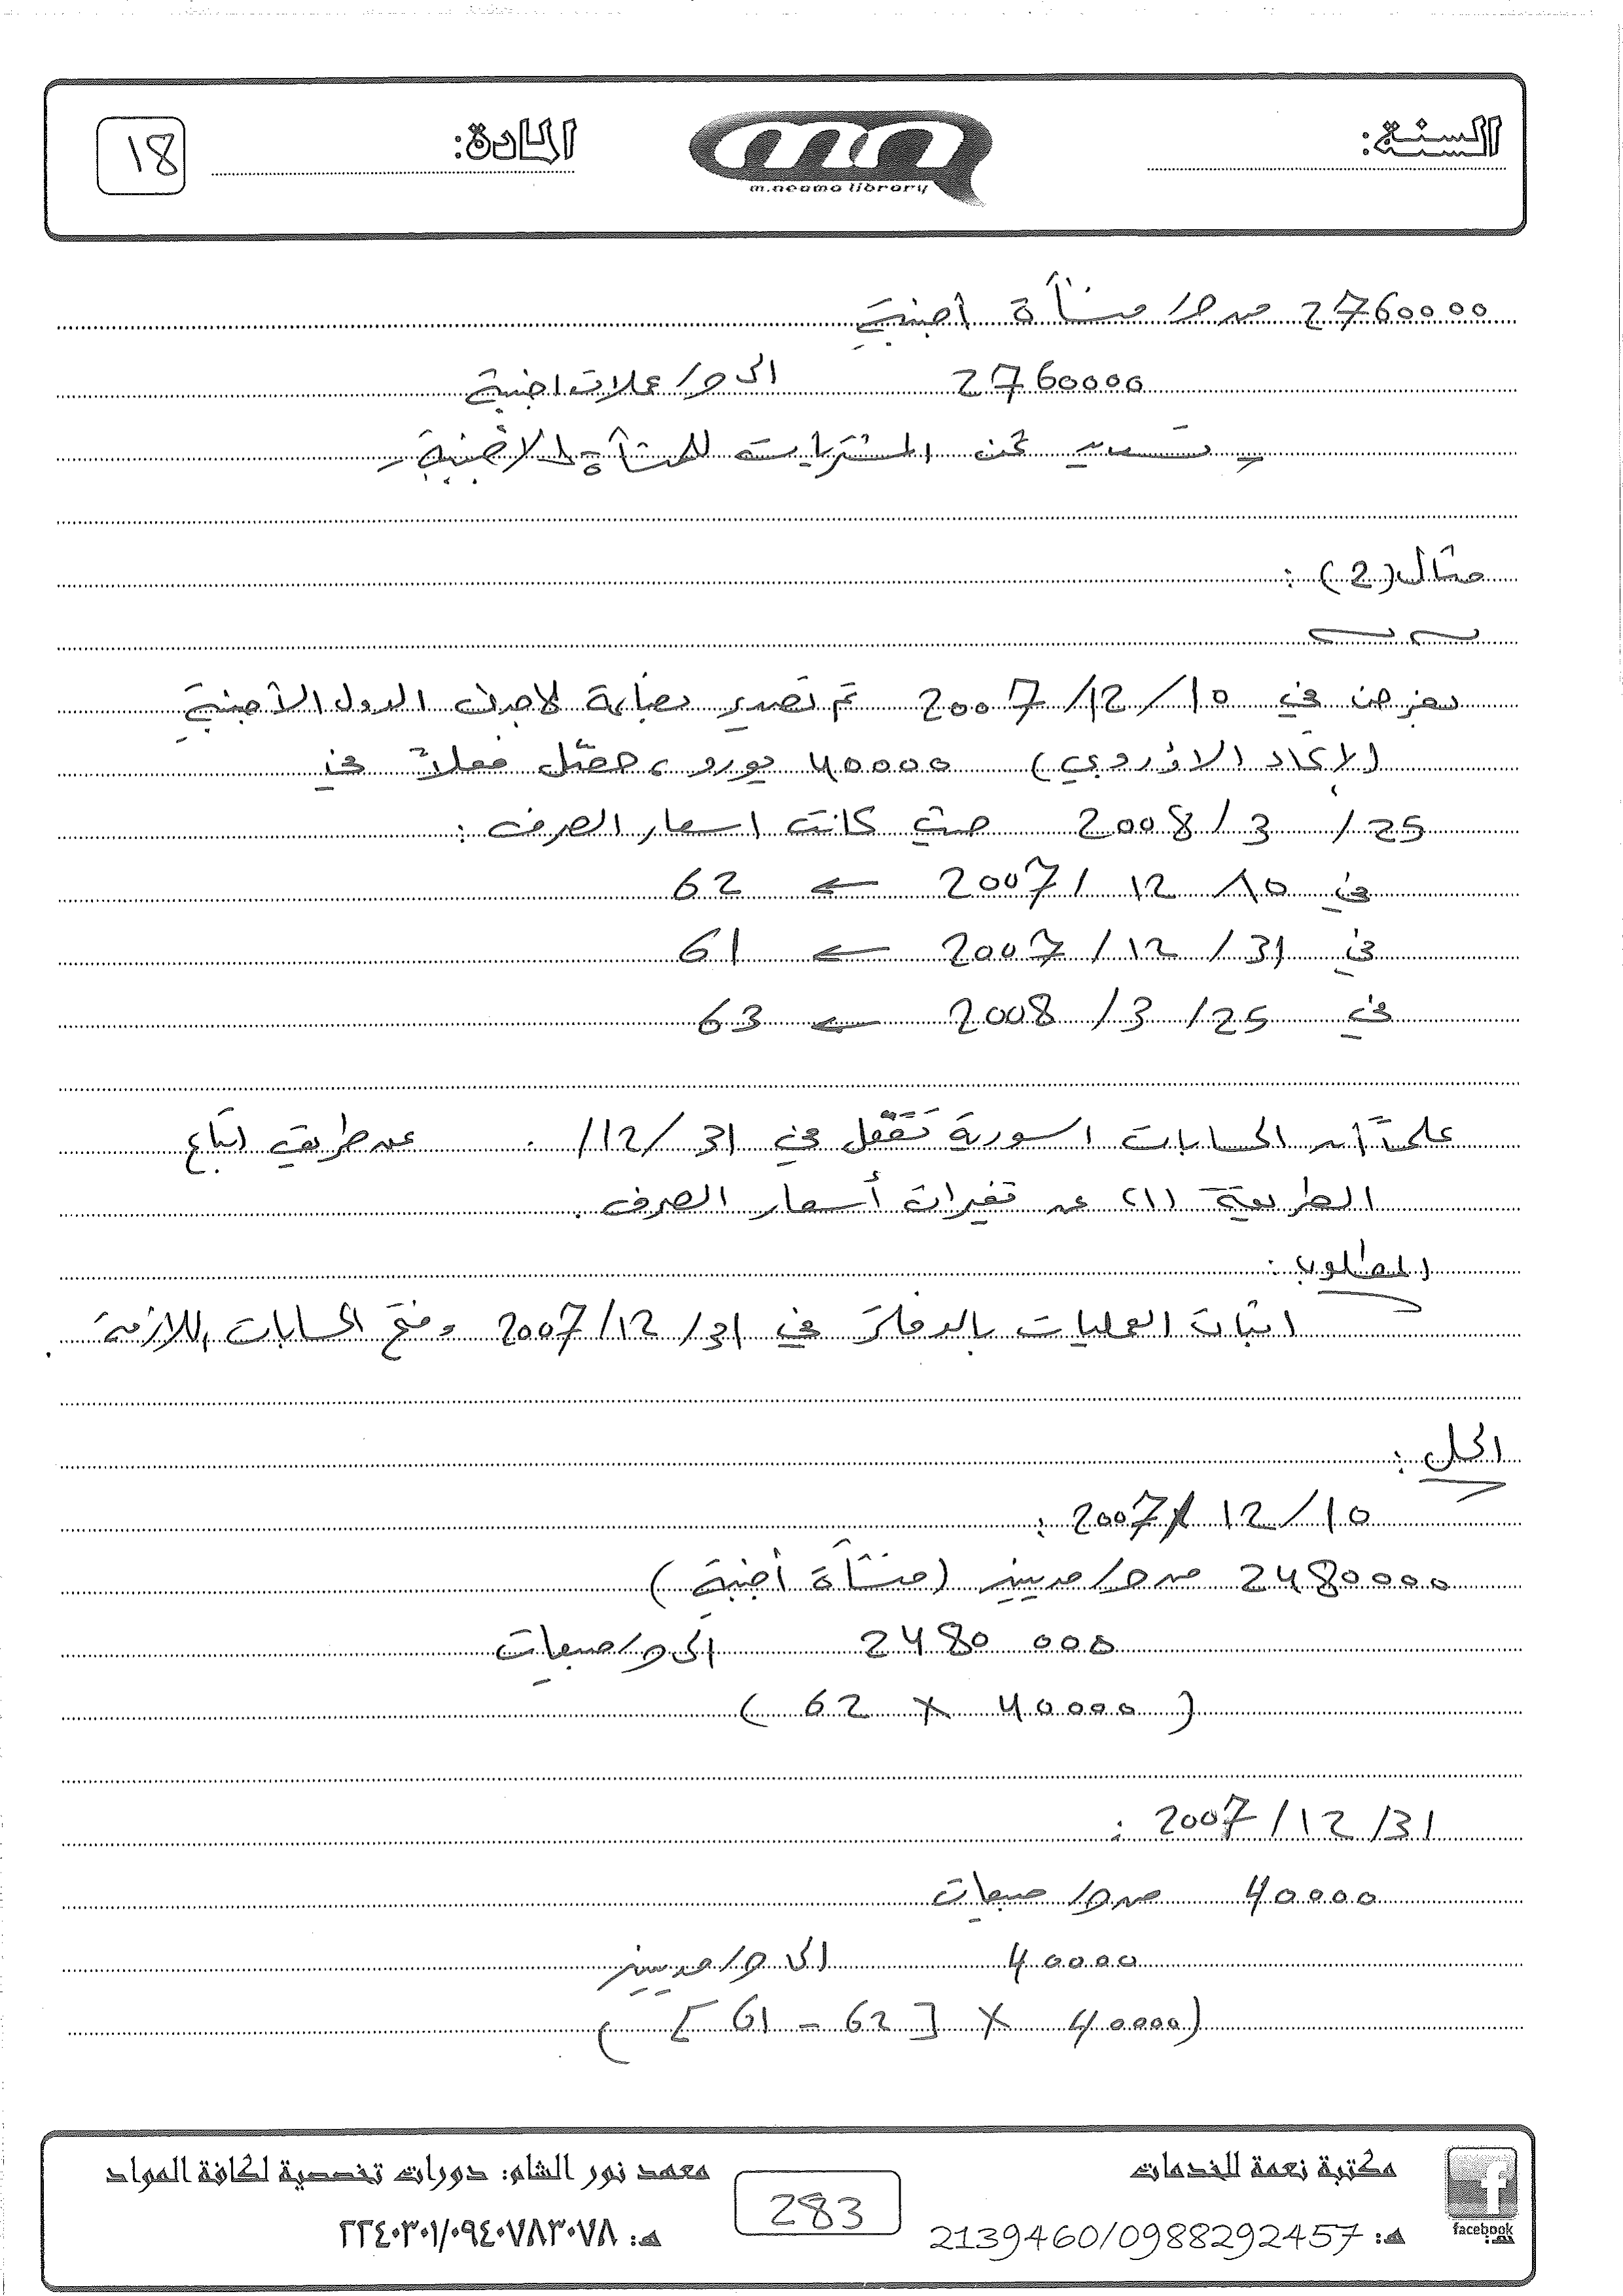 السنة:
m.neama library
المادة:
18
2760000 من ح/ منشأة أجنبية
2760000 الى ح/ عملات اجنبية
- تسديد ثمن المشتريات للمنشأة الاجنبية -
مثال (2) :
بفرض في 10/12/2007 تم تصدير بضاعة لاحدى الدول الأجنبية
(الاتحاد الاوروبي) 40000 يورو ، حصّل فعلاً في
25/3/2008 حيث كانت اسعار الصرف :
في 10/12/2007 ← 62
في 31/12/2007 ← 61
في 25/3/2008 ← 63
علماً أن الحسابات السورية تقفل في 31/12/ . عن طريق اتباع
الطريقة (1) عن تغيرات أسعار الصرف .
المطلوب :
اثبات العمليات بالدفاتر في 31/12/2007 وفتح الحسابات اللازمة .
الحل :
10/12/2007 :
2480000 من ح/ مدينين (منشأة أجنبية)
2480000 الى ح/ مبيعات
(40000 × 62)
31/12/2007 :
40000 من ح/ مبيعات
40000 الى ح/ مدينين
(40000 × [62 - 61])
مكتبة نعمة للخدمات
هـ: 2139460/0988292457
facebook
283
معهد نور الشام: دورات تخصصية لكافة المواد
هـ: ٢٢٤٠٣٠١/٠٩٤٠٧٨٣٠٧٨